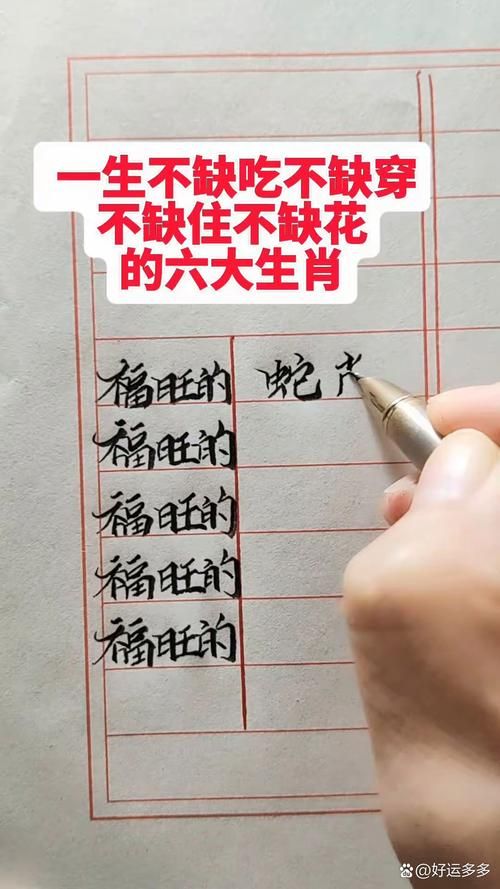 一生不缺吃不缺穿
不缺住不缺花
的六大生肖
福旺的 蛇
福旺的
福旺的
福旺的
福旺的
@好运多多